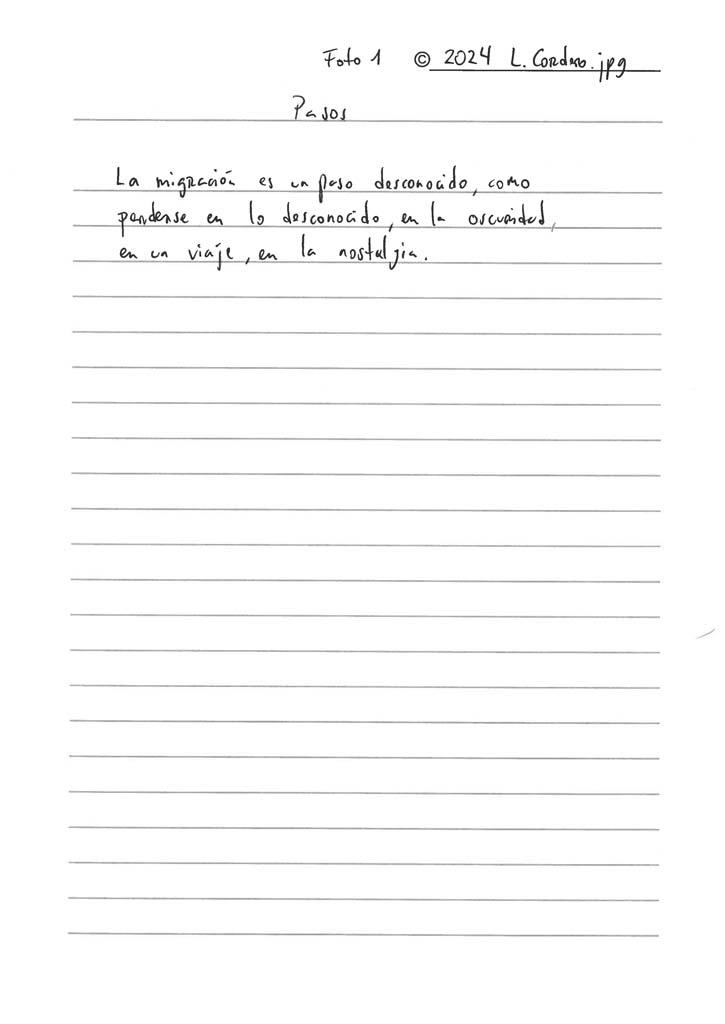 Foto 1 © 2024 L. Cordero.jpg
Pasos
La migración es un paso desconocido, como
perderse en lo desconocido, en la oscuridad,
en un viaje, en la nostalgia.